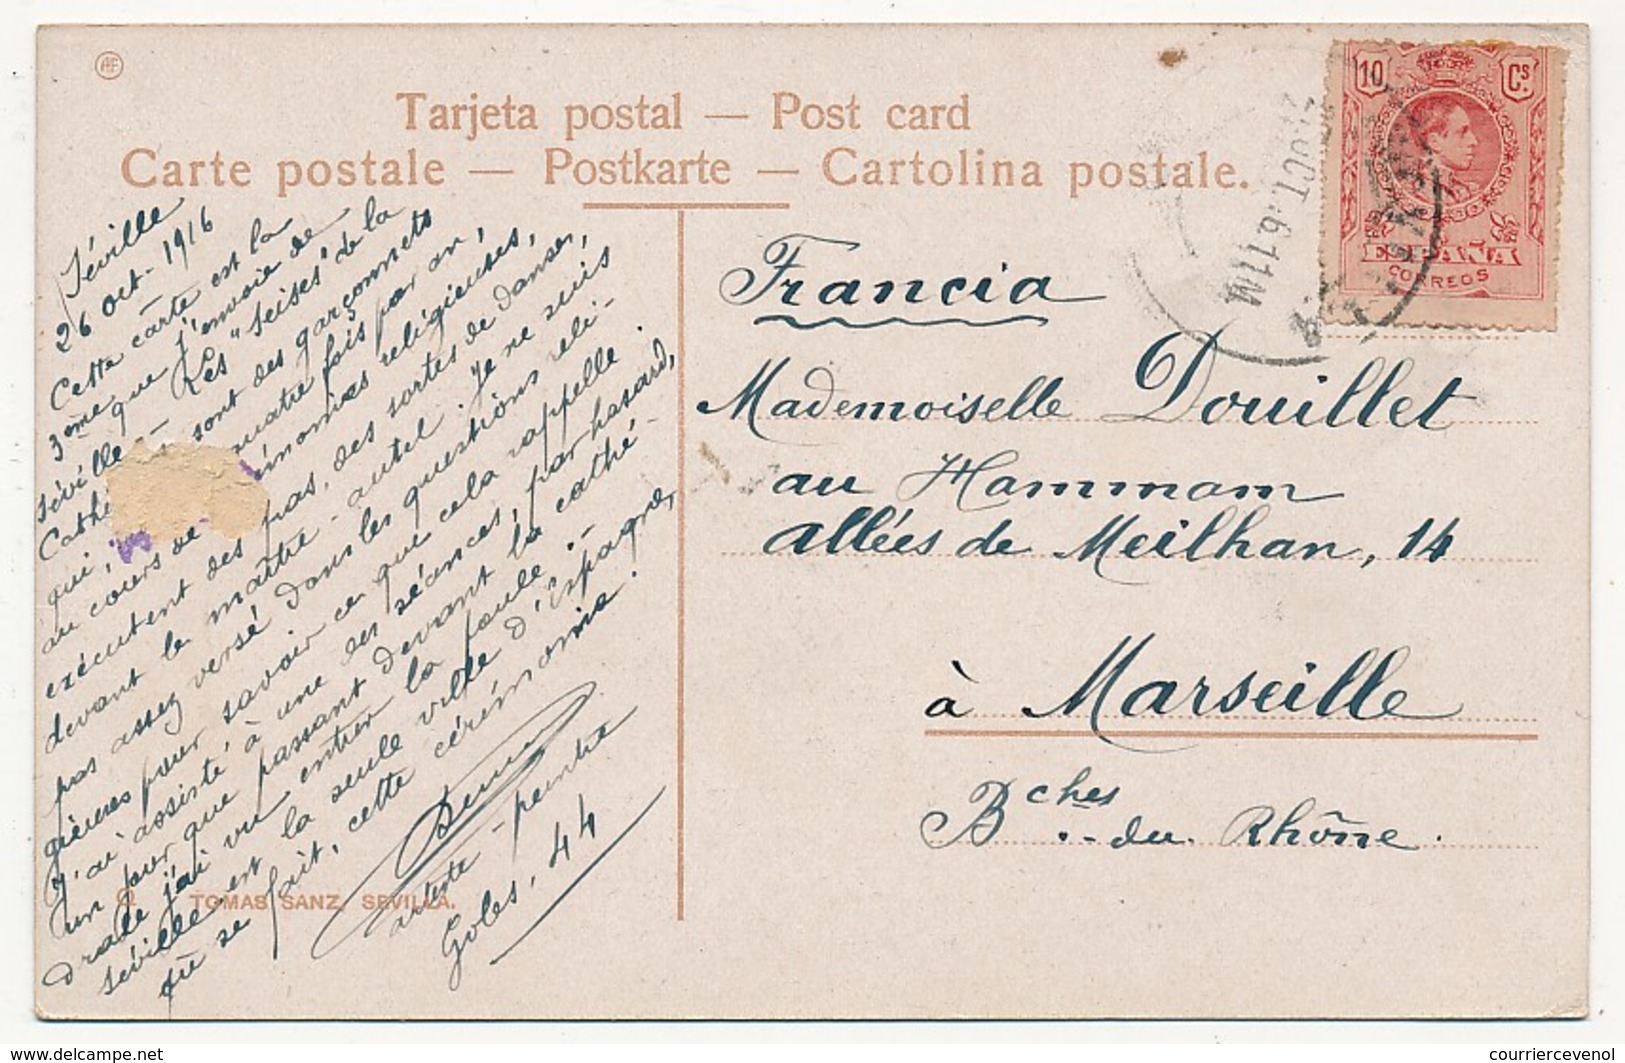 Tarjeta postal — Post card
Carte postale — Postkarte — Cartolina postale.
10 Cs.
ESPAÑA
CORREOS
OCT.16.11M
Séville
26 oct. 1916
Cette carte est la
3ème que j'envoie de
Séville — Les "Seises" de la
Cathé sont des garçonnets
qui, quatre fois par an,
au cours de cérémonies religieuses,
exécutent des pas, des sortes de danses,
devant le maître-autel. Je ne suis
pas assez versé dans les questions reli-
gieuses pour savoir ce que cela rappelle.
J'ai assisté à une des séances, par hasard,
un jour que passant devant la cathé-
drale j'ai vu entrer la foule.—
Séville est la seule ville d'Espagne,
où se fait, cette cérémonie.
artiste-peintre
Goles, 44
TOMAS SANZ, SEVILLA.
Francia
Mademoiselle Douillet
au Hammam
allées de Meilhan, 14
à Marseille
Bches-du Rhône.
delcampe.net
courriercevenol